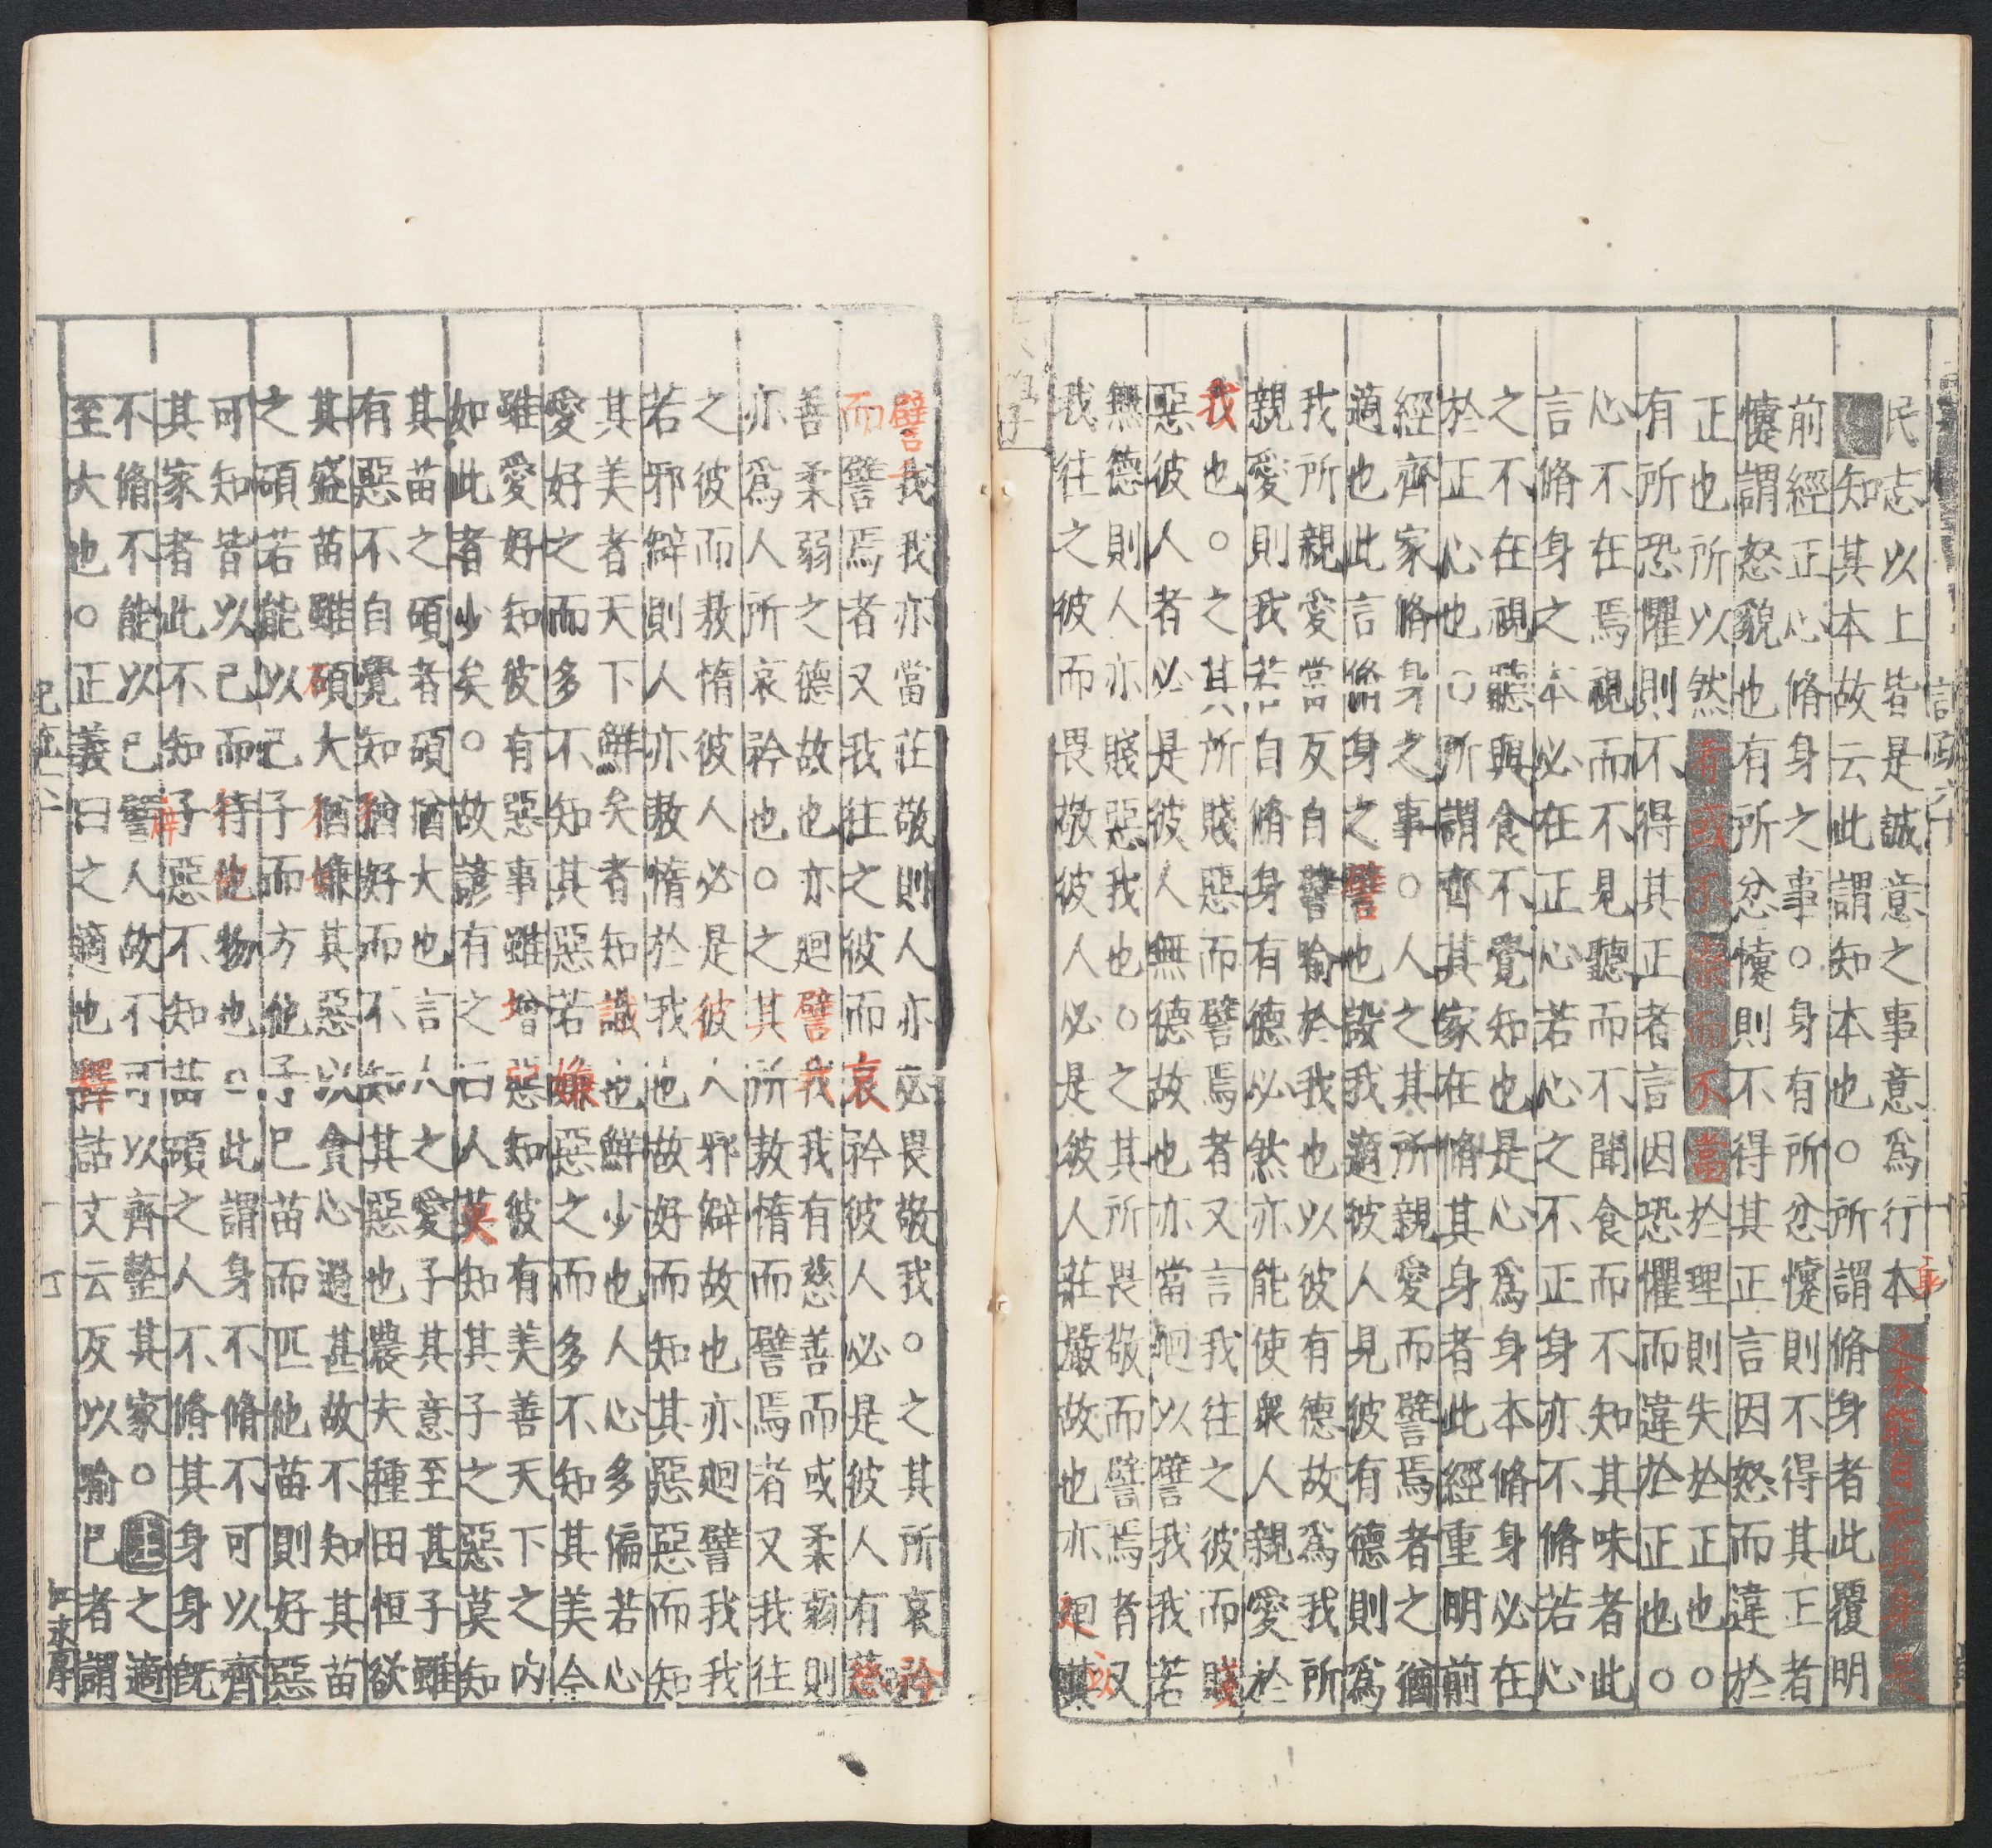 民志以上皆是誠意之事意爲行本之本能自知其身是
知其本故云此謂知本也○所謂脩身者此覆明
前經正心脩身之事○身有所忿懥則不得其正者
懥謂怒貌也有所忿懥則不得其正言因怒而違於
正也所以然者或不察而不當於理則失於正也○
有所恐懼則不得其正者言因恐懼而違於正也○
心不在焉視而不見聽而不聞食而不知其味者此
言脩身之本必在正心若心之不正身亦不脩若心
之不在視聽與食不覺知也是心爲身本脩身必在
於正心也○所謂齊其家在脩其身者此經重明前
經齊家脩身之事○人之其所親愛而譬焉者之猶
適也此言脩身之譬也設我適彼人見彼有德則爲
我所親愛當反自譬喻於我也以彼有德故爲我所
親愛則我若自脩身有德必然亦能使衆人親愛於
我也○之其所賤惡而譬焉者又言我往之彼而賤
惡彼人者必是彼人無德故也亦當迴以譬我我若
無德則人亦賤惡我也○之其所畏敬而譬焉者又
我往之彼而畏敬彼人必是彼人莊嚴故也亦迴其
譬我我亦當莊敬則人亦必畏敬我○之其所哀矜
而譬焉者又我往之彼而哀矜彼人必是彼人有慈
善柔弱之德故也亦迴譬我我有慈善而或柔弱則
亦爲人所哀矜也○之其所敖惰而譬焉者又我往
之彼而敖惰彼人必是彼人邪僻故也亦迴譬我我
若邪僻則人亦敖惰於我也故好而知其惡惡而知
其美者天下鮮矣者知識也鮮少也人心多偏若心
愛好之而多不知其惡若嫌惡之而多不知其美今
雖愛好知彼有惡事雖增惡知彼有美善天下之內
如此者少矣○故諺有之曰人莫知其子之惡莫知
其苗之碩者碩猶大也言人之愛子其意至甚子雖
有惡不自覺知猶好而不知其惡也農夫種田恒欲
其盛苗雖碩大猶嫌其惡以貪心過甚故不知其苗
之碩若能以己子而方他子己苗而匹他苗則好惡
可知皆以己而待他物也○此謂身不脩不可以齊
其家者此不知子惡不知苗碩之人不脩其身身既
不脩不能以己譬人故不可以齊整其家○注之適
至大也○正義曰之適也釋詁文云反以喻己者謂